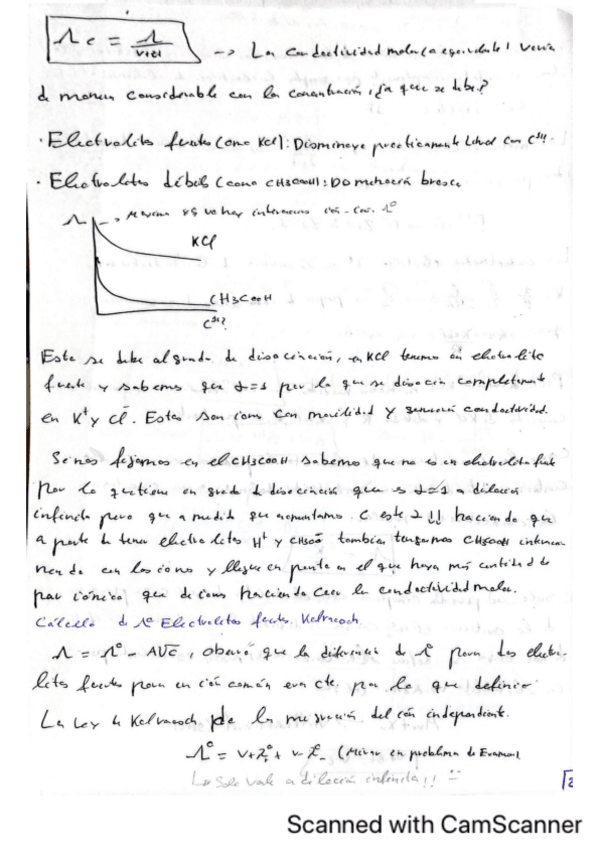 Λc = Λ / ν|z| → La conductividad molar (a equivalente) varía
de manera considerable con la concentración, ¿a que se debe?
· Electrolitos fuertes (como KCl): Disminuye practicamente lineal con
· Electrolitos débiles (como CH3COOH):
Λ no hay interacciones ión - ión. Λ°
KCl
CH3COOH
Esto se debe al grado de disociación, en KCl tenemos un electrolito
fuerte y sabemos que α=1 por lo que se disocia completamente
en K+ y Cl-. Estos son iones con movilidad y generan conductividad.
Si nos fijamos en el CH3COOH sabemos que no es un electrolito fuerte
por lo que tiene un grado de disociación que es α=1 a dilución
infinita pero que a medida que aumentamos C este α ↓↓ haciendo que
a parte de tener electrolitos H+ y CH3COO- tambien tengamos CH3COOH
con los iones y llegue un punto en el que haya más cantidad de
par iónico que de iones haciendo caer la conductividad molar.
Cálculo de Λ° Electrolitos fuertes.
Λ = Λ° - A√C, observó que la diferencia de Λ° para dos electro-
litos fuertes para un ión común era cte. por lo que definió
La Ley de de la migración del ión independiente.
Λ° = ν+ λ°+ + ν- λ°- (Mirar un problema de Examen)
↳ Solo vale a dilución infinita!!
Scanned with CamScanner